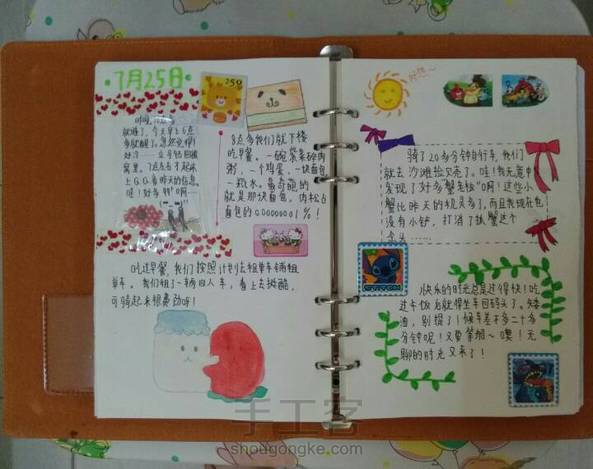 7月25日
就睡了，今天早上6点
多就醒了，忽然觉得
好冷
窝里。7点左右才起来
8点多我们就下楼
吃早餐。一碗菜菜碎肉
粥，一个鸡蛋，一块面包，
一瓶水。最奇葩的
就是那块面包，肉松占
面包的0.0000001%！
吃过早餐，我们按照计划去租单车铺租
单车。我们租了一辆四人车，看上去挺酷，
可骑起来很费劲呀！
好热～
骑了20多分钟自行车，我们
就去沙滩捡贝壳了。哇！我无意中
发现了好多蟹毛蛤"啊！这些小
蟹比昨天的机灵多了，而且我现在也
没有小铲，打消了抓蟹这个
念头……
快乐的时光总是过得快！吃
过午饭后就得坐车回码头了。矮
油，别提了！候车差不多二十多
分钟呢！又要等船～噢！无
聊的时光又来了！
手工客
shougongke.com